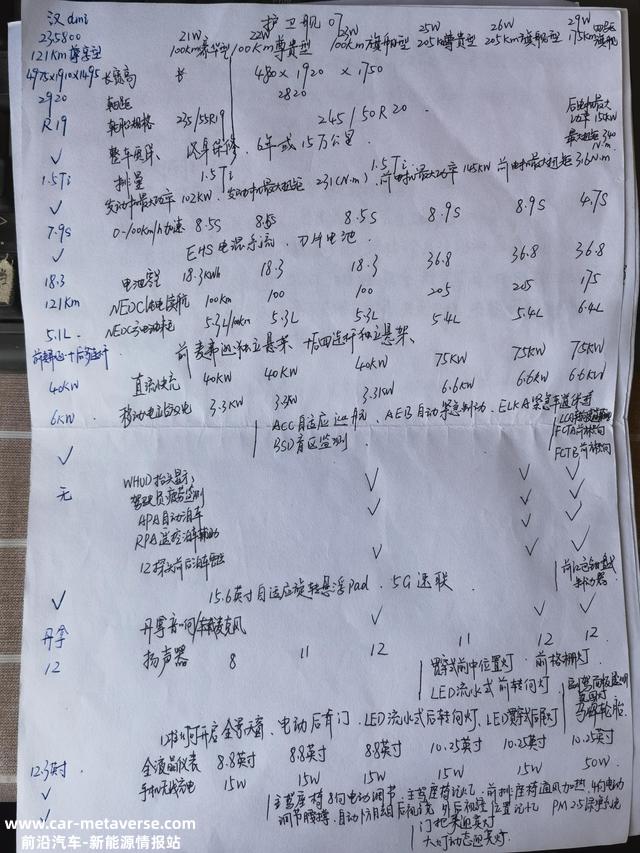 汉dmi 护卫舰07
235800 21W 22W 23W 25W 26W 29W
121KM尊荣型 100km豪华型 100km尊贵型 100km旗舰型 205km尊贵型 205km旗舰型 175km四驱旗舰
4975×1910×1495 长宽高 480×1920×1750
2920 轴距 2820
R19 轮胎规格 235/55R19 245/50R20
后电机最大功率15KW
最大扭矩340N·m
√ 整车质保 终身保修、6年或15万公里
1.5Ti 排量 1.5Ti 1.5Ti
√ 发动机最大功率102KW、发动机最大扭矩231(N·m)、前电机最大功率145KW 前电机最大扭矩316N·m
7.9S 0-100km/h加速 8.5S 8.5S 8.5S 8.9S 8.9S 4.7S
√ EHS电混系统、刀片电池
18.3 电池容量 18.3KWh 18.3 18.3 36.8 36.8 36.8
121Km NEDC纯电续航 100Km 100 100 205 205 175
5.1L NEDC亏电油耗 5.3L/100km 5.3L 5.3L 5.4L 5.4L 6.4L
前麦弗逊+后多连杆 前麦弗逊独立悬架、+后四连杆独立悬架、
40KW 直流快充 40KW 40KW 40KW 75KW 75KW 75KW
6KW 移动电站放电 3.3KW 3.3KW 3.3KW 6.6KW 6.6KW 6.6KW
√ ACC自适应巡航、AEB自动紧急制动、ELKA紧急车道保持
BSD盲区监测
FCTA前横向
FCTB前横向
无 WHUD抬头显示 √ √ √
驾驶员疲劳监测 √ √ √
APA自动泊车 √ √ √
RPA遥控泊车辅助 √ √ √
12探头前后泊车雷达
√ 15.6英寸自适应旋转悬浮Pad、5G速联
丹拿 丹拿音响/车载麦克风 √ √ √
12 扬声器 8 11 12 11 12 12
贯穿式前中位置灯、前格栅灯
LED流水式前转向灯
马牌轮胎
可开启全景天窗、电动后背门、LED流水式后转向灯、LED贯穿式后尾灯
12.3英寸 全液晶仪表 8.8英寸 8.8英寸 8.8英寸 10.25英寸 10.25英寸 10.25英寸
√ 手机无线充电 15W 15W 15W 15W 15W 50W
√ 主驾座椅8向电动调节、主驾座椅记忆、前排座椅通风加热、4向电动
调节腰撑、自动防眩目后视镜、外后视镜位置记忆 PM2.5
门把手迎宾灯
大灯动态迎宾灯
www.car-metaverse.com
前沿汽车-新能源情报站